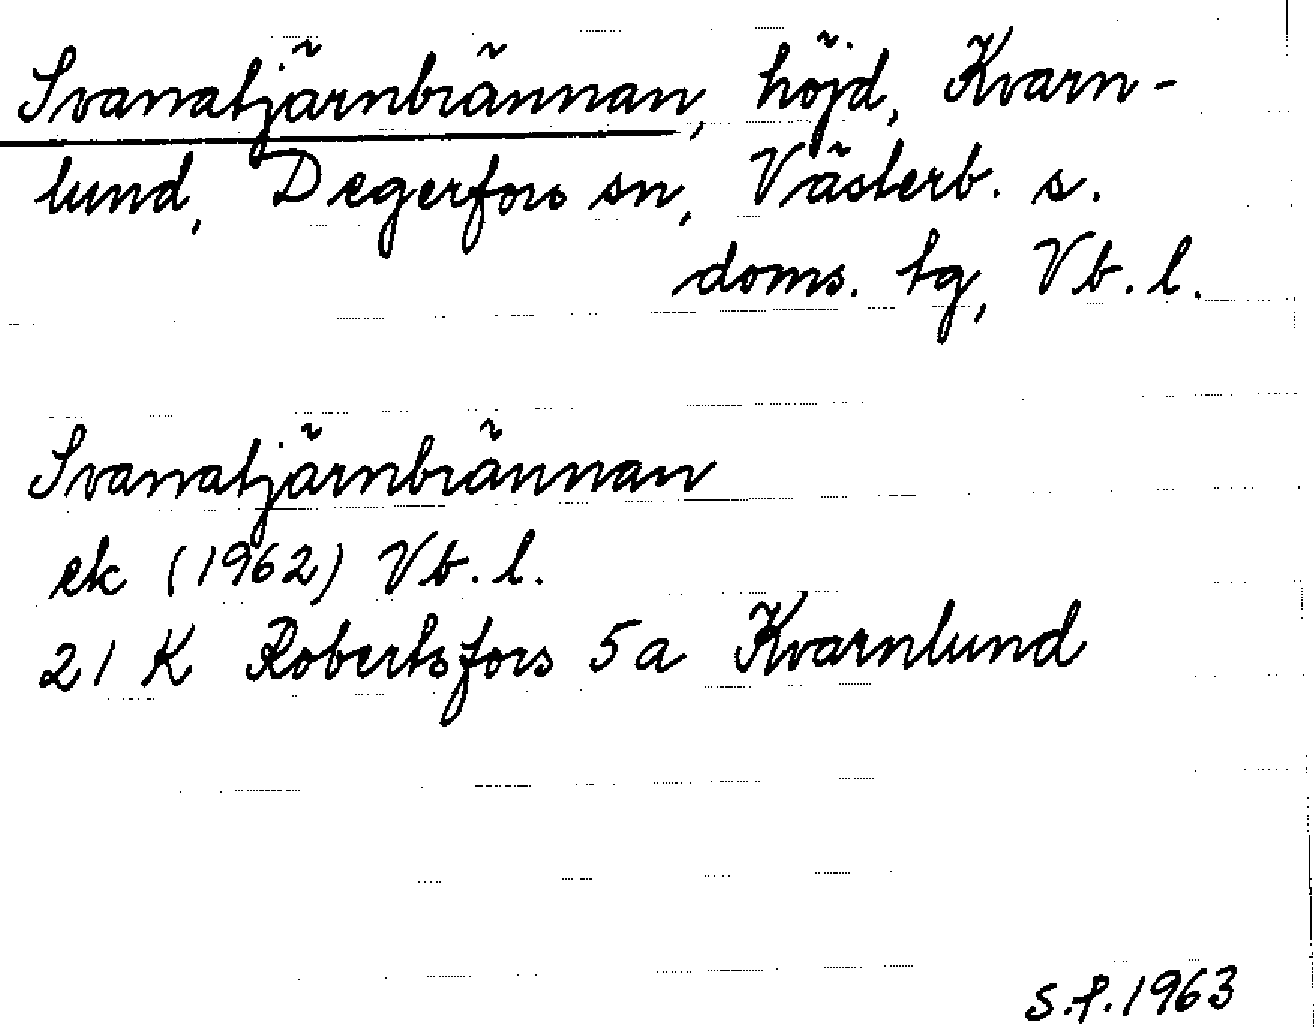 Svanatjärnbrännan, höjd, Kvarn-
lund, Degerfors sn, Västerb. s.
doms. tg, Vb. l.
Svanatjärnbrännan
ek (1962) Vb. l.
21 K Robertsfors 5a Kvarnlund
S.f. 1963